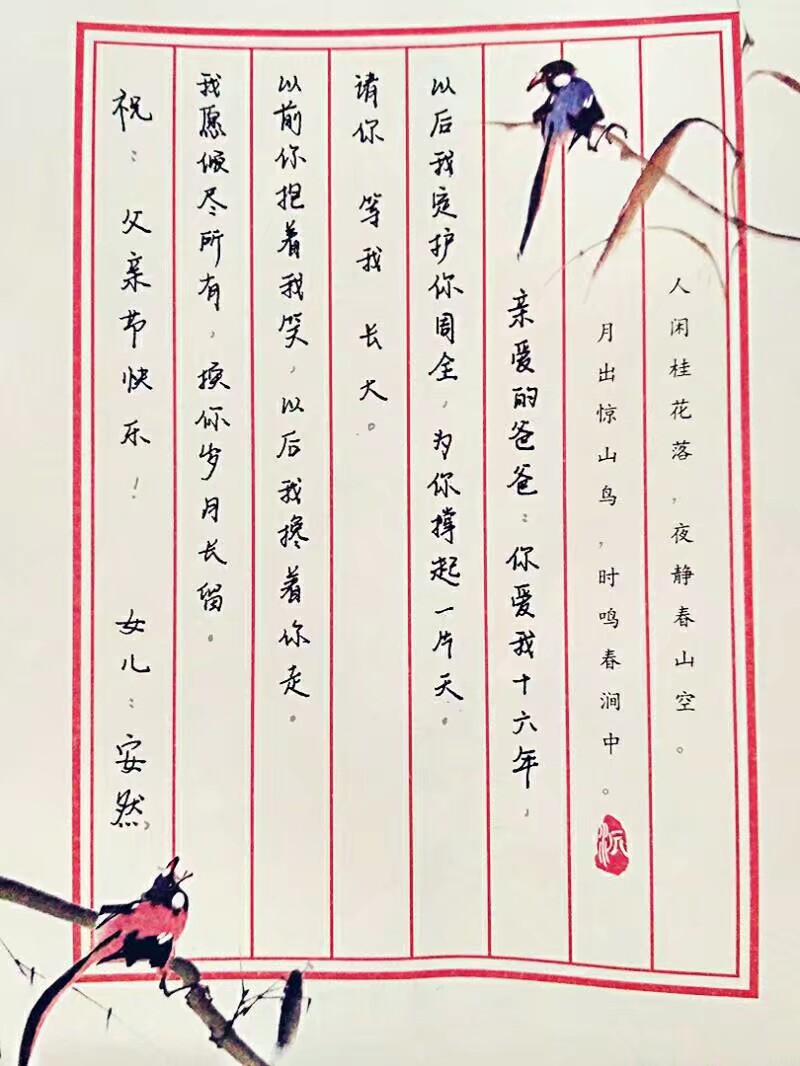 人闲桂花落，夜静春山空。
月出惊山鸟，时鸣春涧中。
亲爱的爸爸：你爱我十六年，
以后我定护你周全，为你撑起一片天。
请你 等我 长大。
以前你抱着我笑，以后我搀着你走。
我愿倾尽所有，换你岁月长留。
祝：父亲节快乐！ 女儿：安然